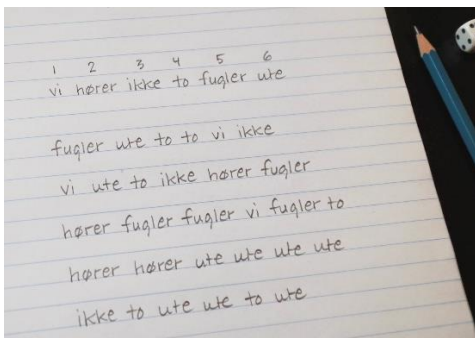 1 2 3 4 5 6
vi hører ikke to fugler ute
fugler ute to to vi ikke
vi ute to ikke hører fugler
hører fugler fugler vi fugler to
hører hører ute ute ute ute
ikke to ute ute to ute